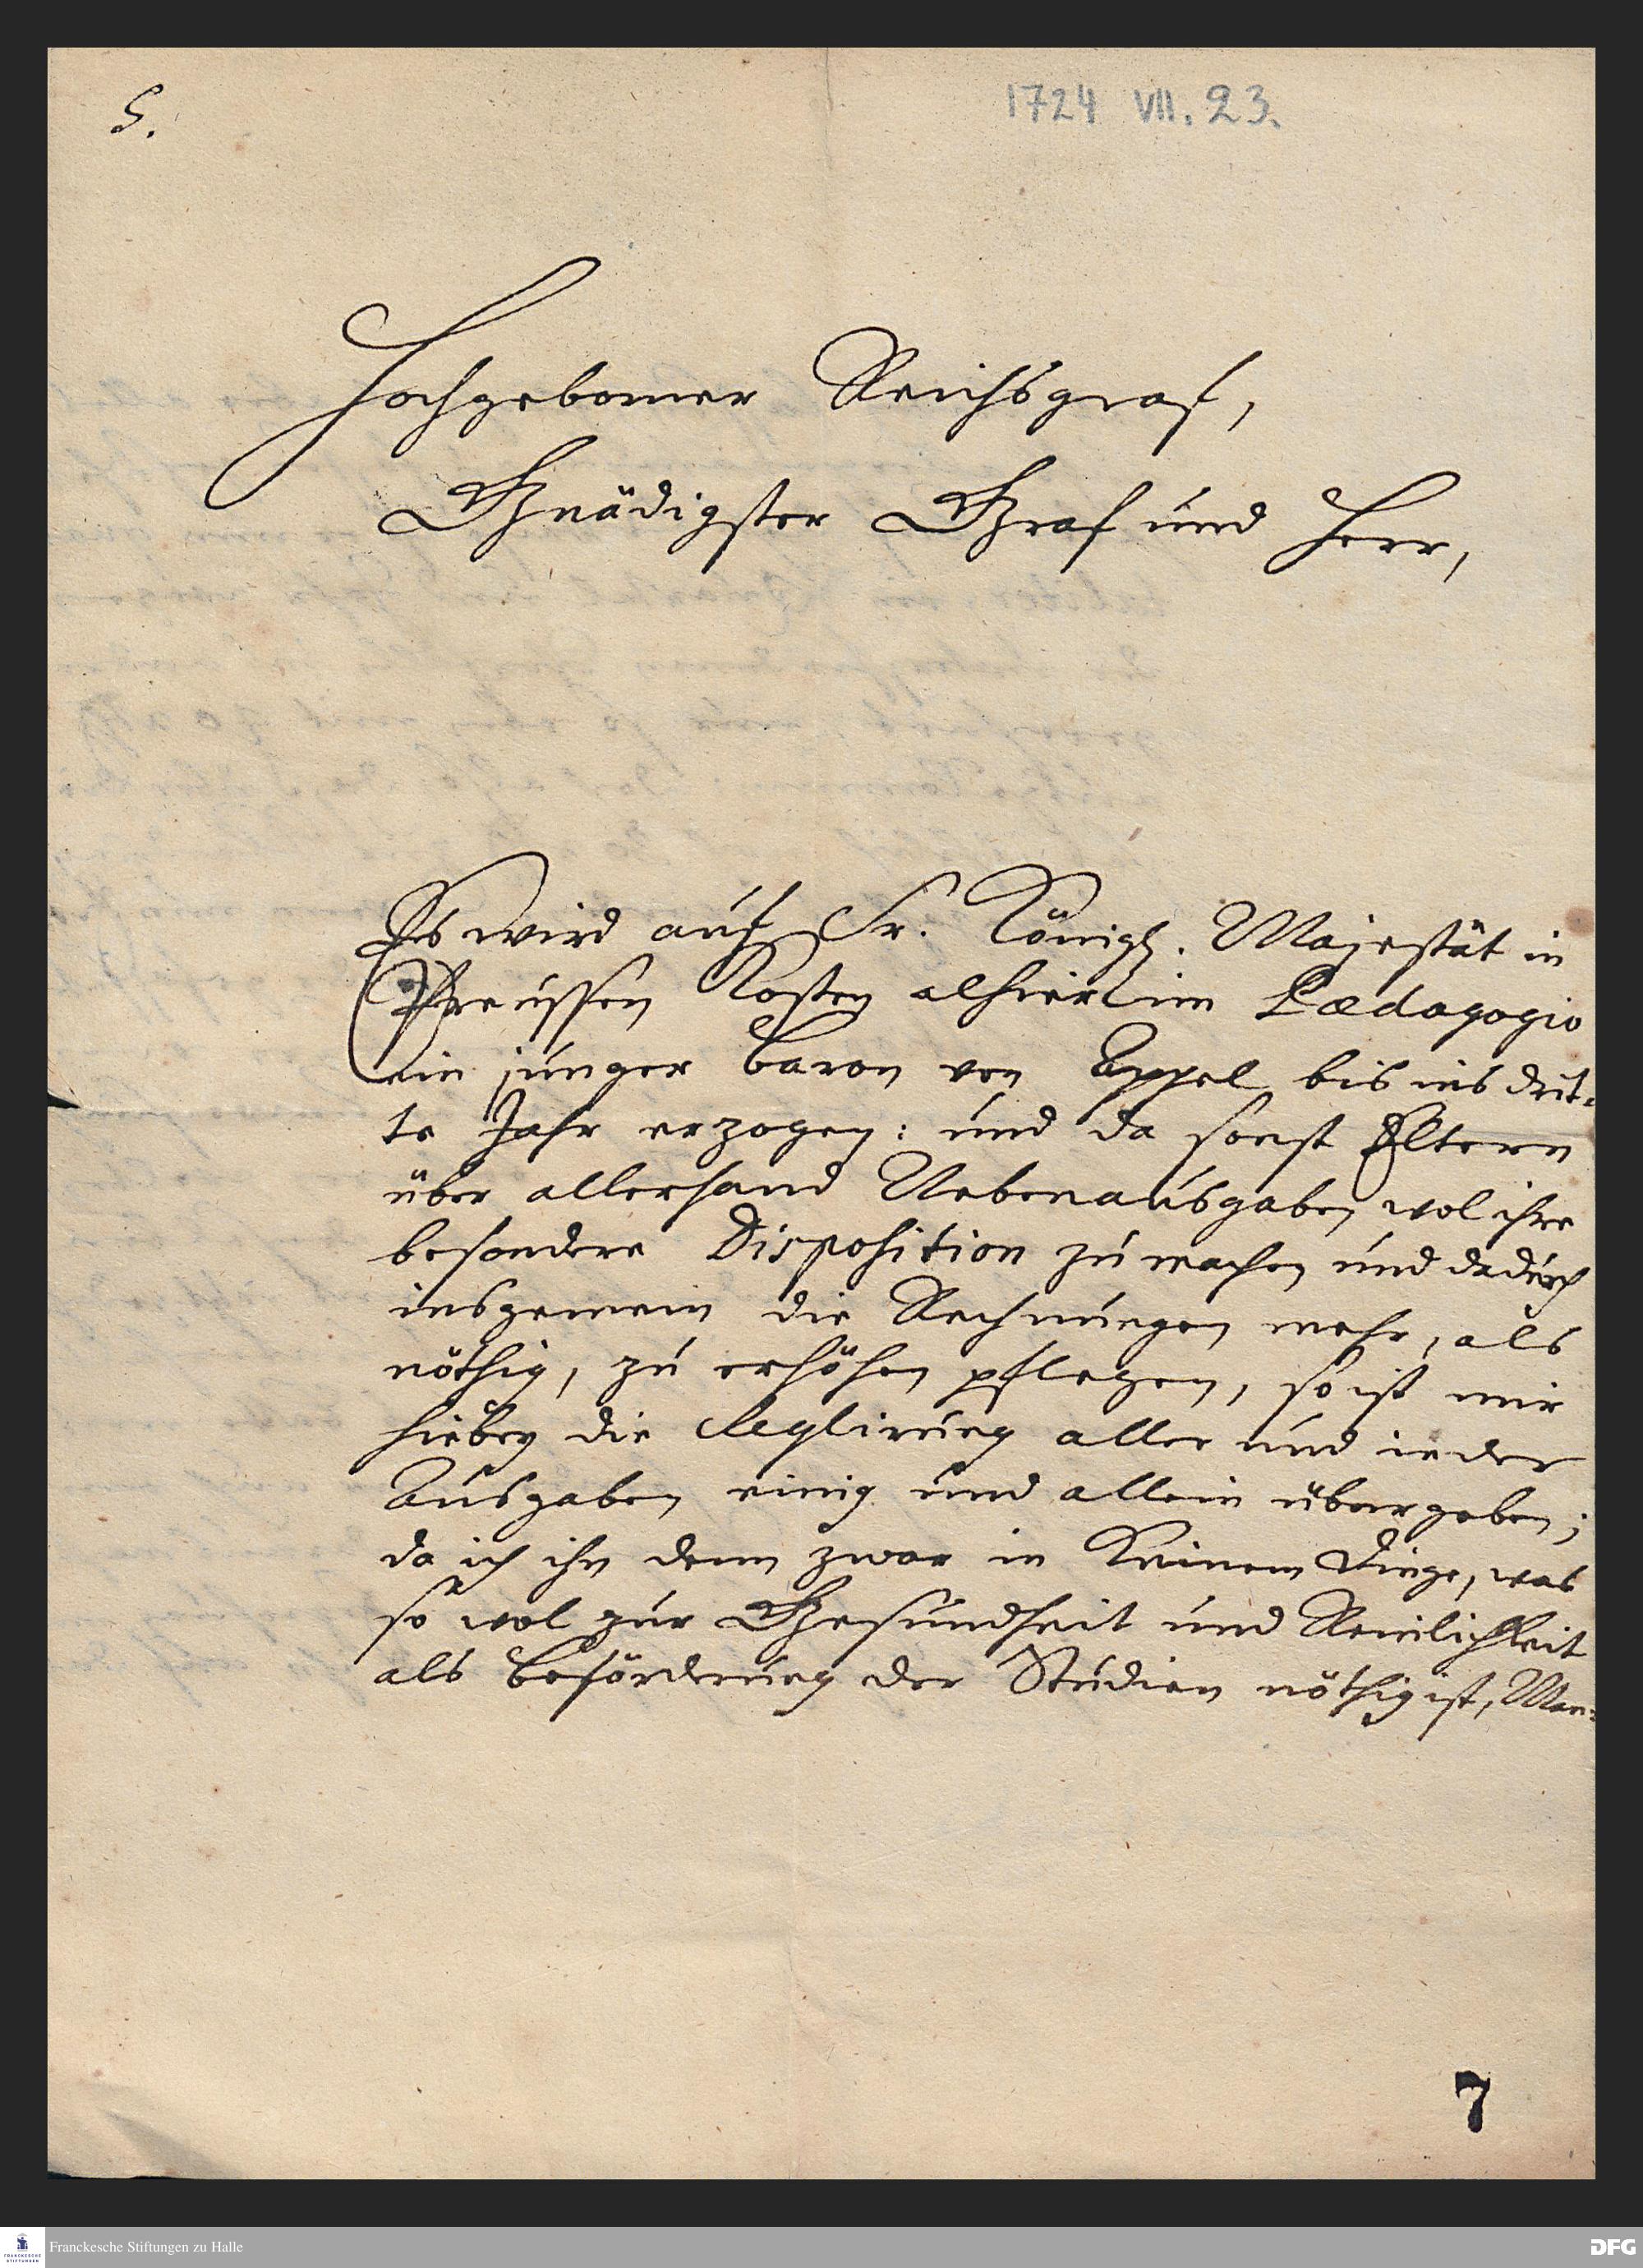 5.
1724 VII. 23.
Hochgeborner Reichsgraf,
Gnädigster Graf und Herr,
Es wird auf Sr. Königl. Majestät in
Preussen Kosten alhier im Pædagogio
ein junger Baron von Eppel bis ins drit-
te Jahr erzogen: und da sonst Eltern
über allerhand Nebenausgaben wol ihre
besondere Disposition zu machen und dadurch
insgemein die Rechnungen mehr, als
nöthig, zu erhöhen pflegen, so ist mir
hiebey die Reglirung aller und ieder
Ausgaben einig und allein übergeben;
da ich ihn denn zwar in keinem Dinge, was
so wol zur Gesundheit und Reinlichkeit
als Beförderung der Studien nöthig ist, Man-
7
Franckesche Stiftungen zu Halle
FRANCKESCHE STIFTUNGEN
DFG